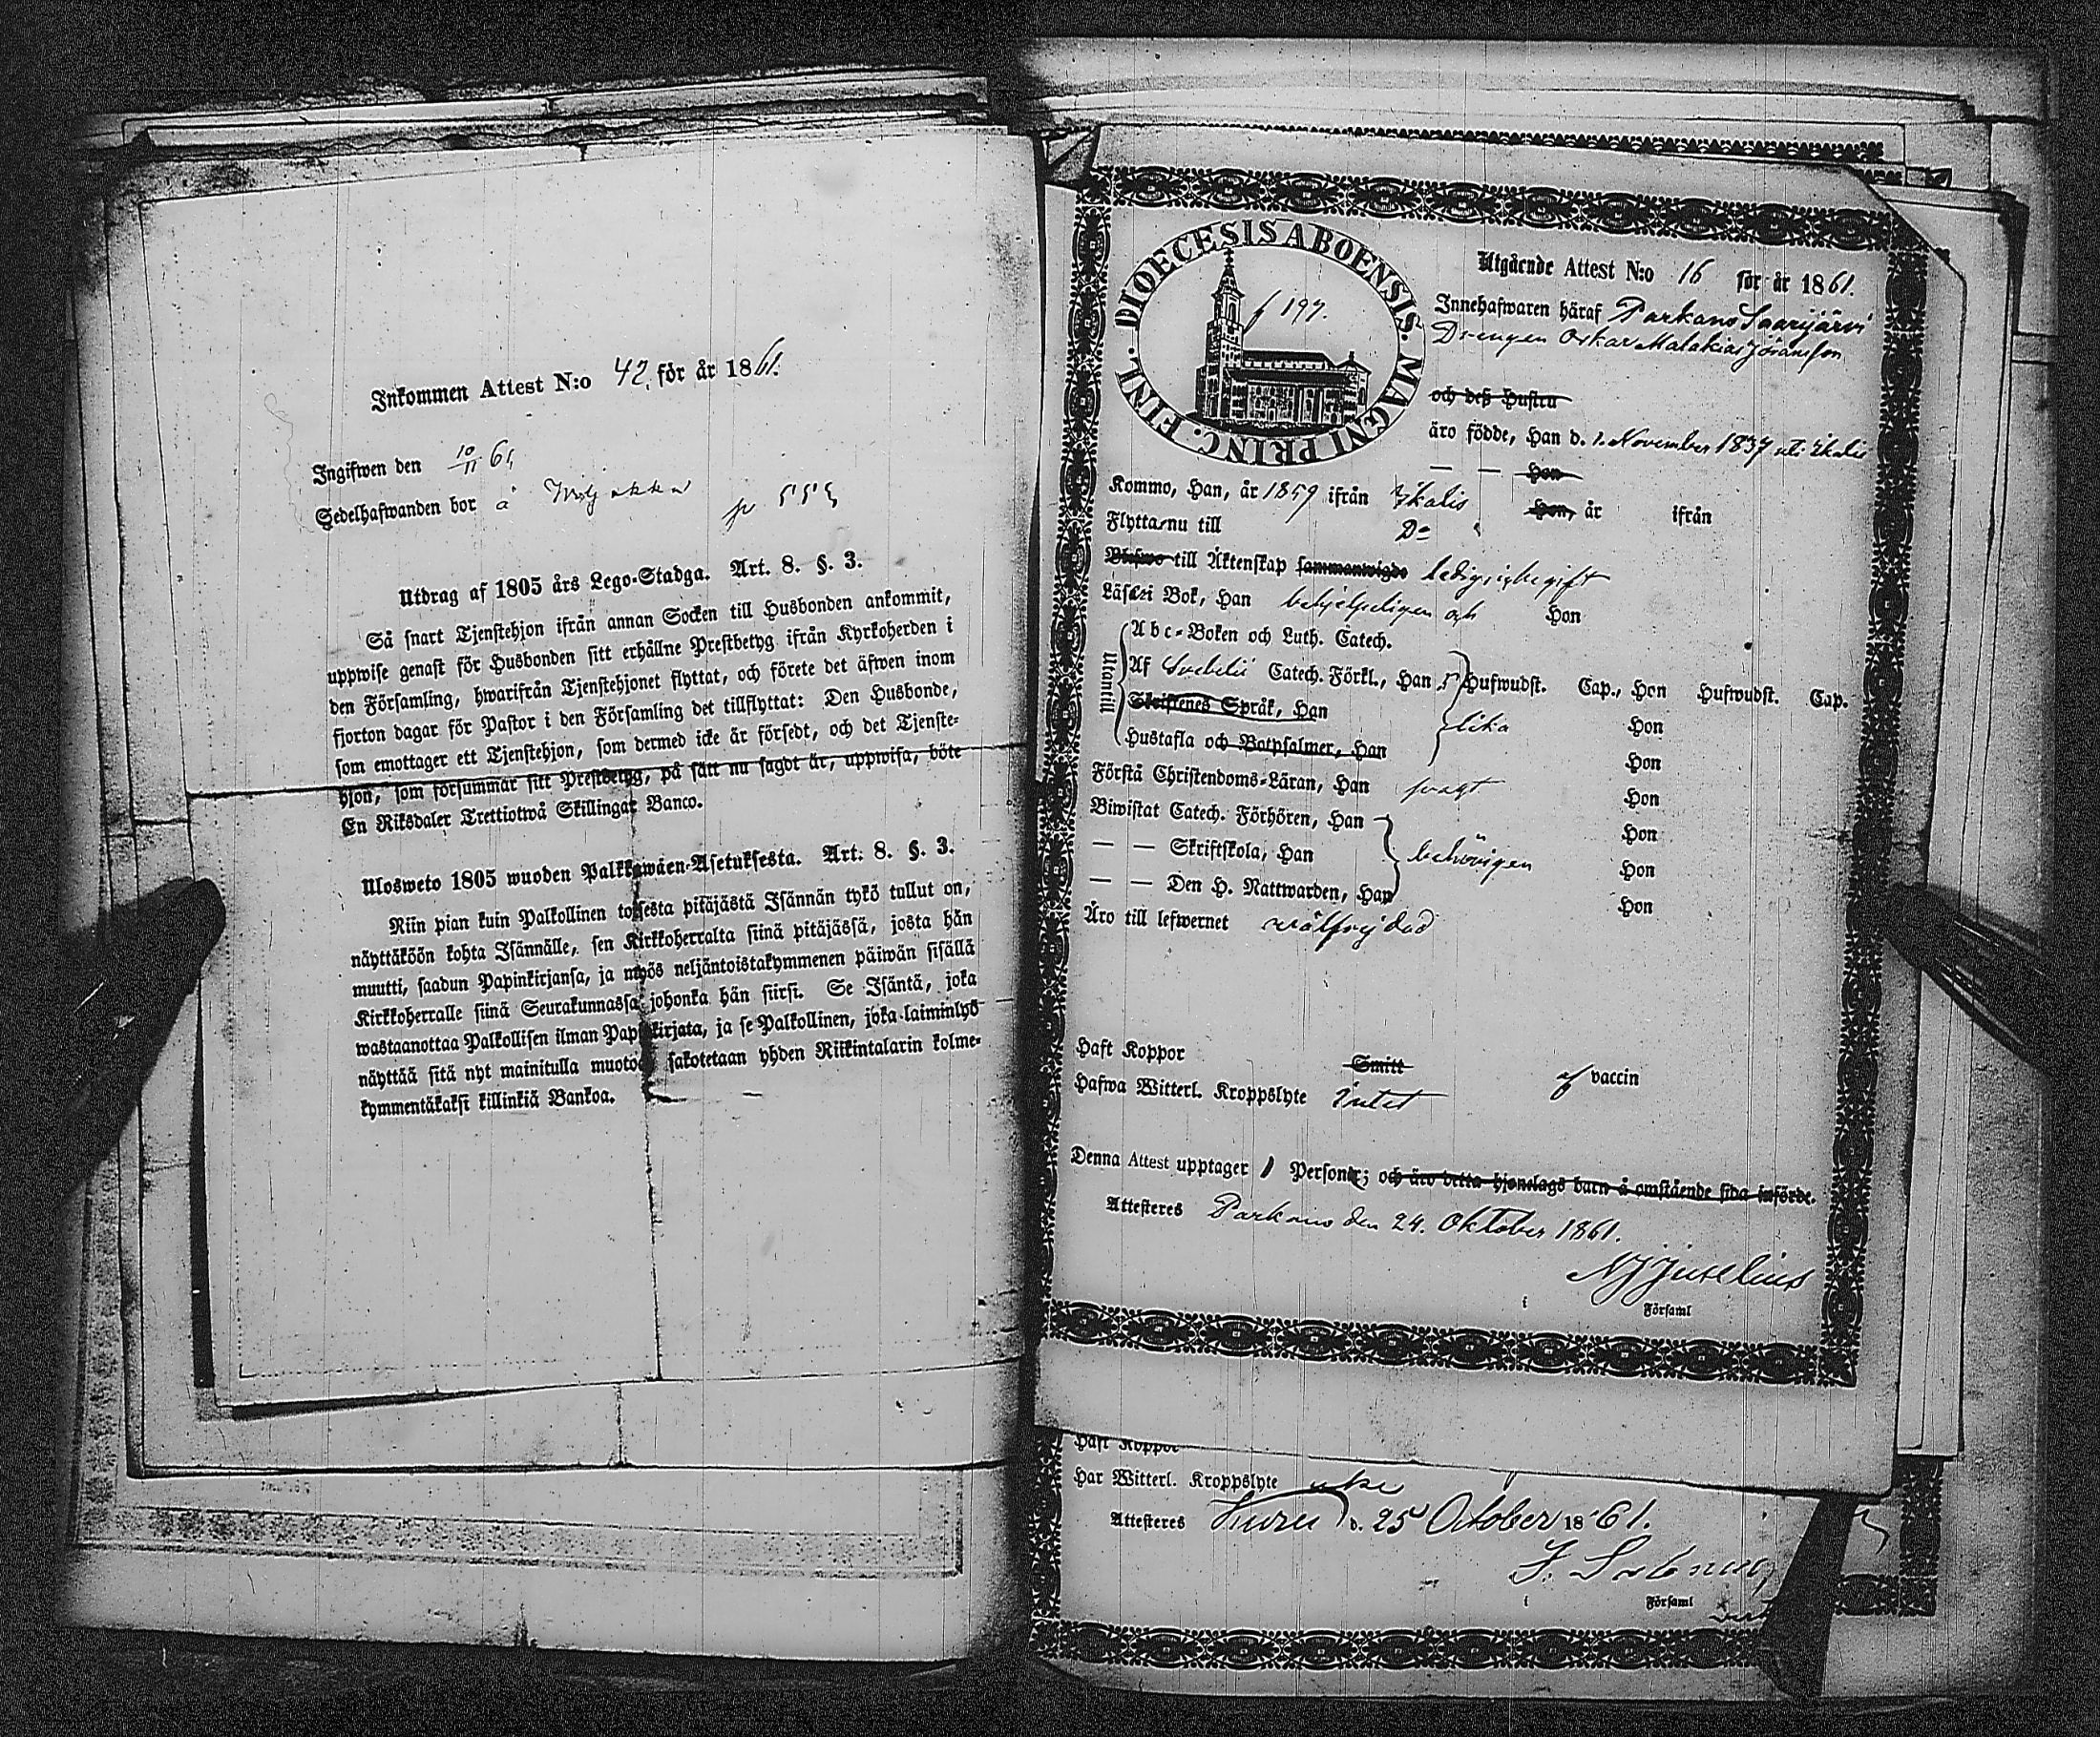 Inkommen Attest N:o 42. för år 1861.
Ingifwen den 10/11 61
Sedelhafwanden bor å
Utdrag af 1805 års Lego-Stadga. Art. 8. §. 3.
Så snart Tjenstehjon ifrån annan Socken till Husbonden ankommit,
uppwise genast för Husbonden sitt erhållne Prestbetyg ifrån Kyrkoherden i
den Församling, hwarifrån Tjenstehjonet flyttat, och förete det äfwen inom
fjorton dagar för Pastor i den Församling det tillflyttat: Den Husbonde,
som emottager ett Tjenstehjon, som dermed icke är försedt, och det Tjenste-
hjon, som försummar sitt Prestbetyg, på sätt nu sagdt är, uppwisa, böte
En Riksdaler Trettiotwå Skillingar Banco.
Ulosweto 1805 wuoden Palkkawäen-Asetuksesta. Art. 8. §. 3.
Niin pian kuin Palkollinen toisesta pitäjästä Isännän tykö tullut on,
näyttäköön kohta Isännälle, sen Kirkkoherralta siinä pitäjässä, josta hän
muutti, saadun Papinkirjansa, ja myös neljäntoistakymmenen päiwän sisällä
Kirkkoherralle siinä Seurakunnassa johonka hän siirsi. Se Isäntä, joka
wastaanottaa Palkollisen ilman Papinkirjata, ja se Palkollinen, joka laiminlyö
näyttää sitä nyt mainitulla muotoa, sakotetaan yhden Riikintalarin kolme-
kymmentäkaksi killinkiä Bankoa.
DIOECESIS ABOENSIS. MAGNI PRINC. FINL.
f 197.
Utgående Attest N:o 16 för år 1861.
Innehafwaren häraf Parkano Saarijärvi
Drengen Oskar Malakias Göransson
och deß Hustru
äro födde, Han d. 1. November 1837 uti Ikalis
— — Hon
Kommo, Han, år 1859 ifrån Ikalis Hon, år ifrån
Flytta nu till D:o
Blefwo till Äktenskap sammanwigde ledig, ogift
Läser i Bok, Han behjelpeligen och Hon
Utantill
Abc-Boken och Luth. Catech.
Af Svebelii Catech. Förkl., Han 5 Hufwudst. Cap., Hon Hufwudst. Cap.
Skriftenes Språk, Han lika Hon
Hustafla och Botpsalmer, Han Hon
Förstå Christendoms-Läran, Han svagt Hon
Biwistat Catech. Förhören, Han Hon
— — Skriftskola, Han behörigen Hon
— — Den H. Nattwarden, Han Hon
Äro till lefwernet wälfrejdad
Haft Koppor Smitt af vaccin
Hafwa Witterl. Kroppslyte Intet
Denna Attest upptager 1 Person; och äro detta hjonelags barn å omstående sida införde.
Attesteres Parkano den 24. Oktober 1861.
N J Juselius
i Församl
Haft Koppor
Har Witterl. Kroppslyte icke
Attesteres Kuru d. 25 October 1861.
i Församl